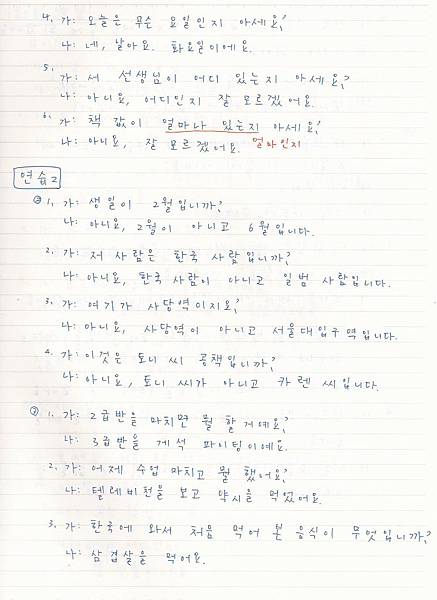 4. 가: 오늘은 무슨 요일인지 아세요?
나: 네, 알아요. 화요일이에요.
5. 가: 서 선생님이 어디 있는지 아세요?
나: 아니요, 어디인지 잘 모르겠어요.
6. 가: 책 값이 얼마나 있는지 아세요?
나: 아니요, 잘 모르겠어요. 얼마인지
연습2
① 1. 가: 생일이 2월입니까?
나: 아니요, 2월이 아니고 6월입니다.
2. 가: 저 사람은 한국 사람입니까?
나: 아니요, 한국 사람이 아니고 일범 사람입니다.
3. 가: 여기가 사당역이지요?
나: 아니요, 사당역이 아니고 서울대입구역입니다.
4. 가: 이것은 토니 씨 공책입니까?
나: 아니요, 토니 씨가 아니고 카렌 씨입니다.
② 1. 가: 2급반을 마치면 뭘 할 거예요?
나: 3급반을 게석 파이팅이예요.
2. 가: 어제 수업 마치고 뭘 했어요?
나: 텔레비전을 보고 약시을 먹었어요.
3. 가: 한국에 와서 처음 먹어 본 음식이 무엇입니까?
나: 삼겹살을 먹어요.